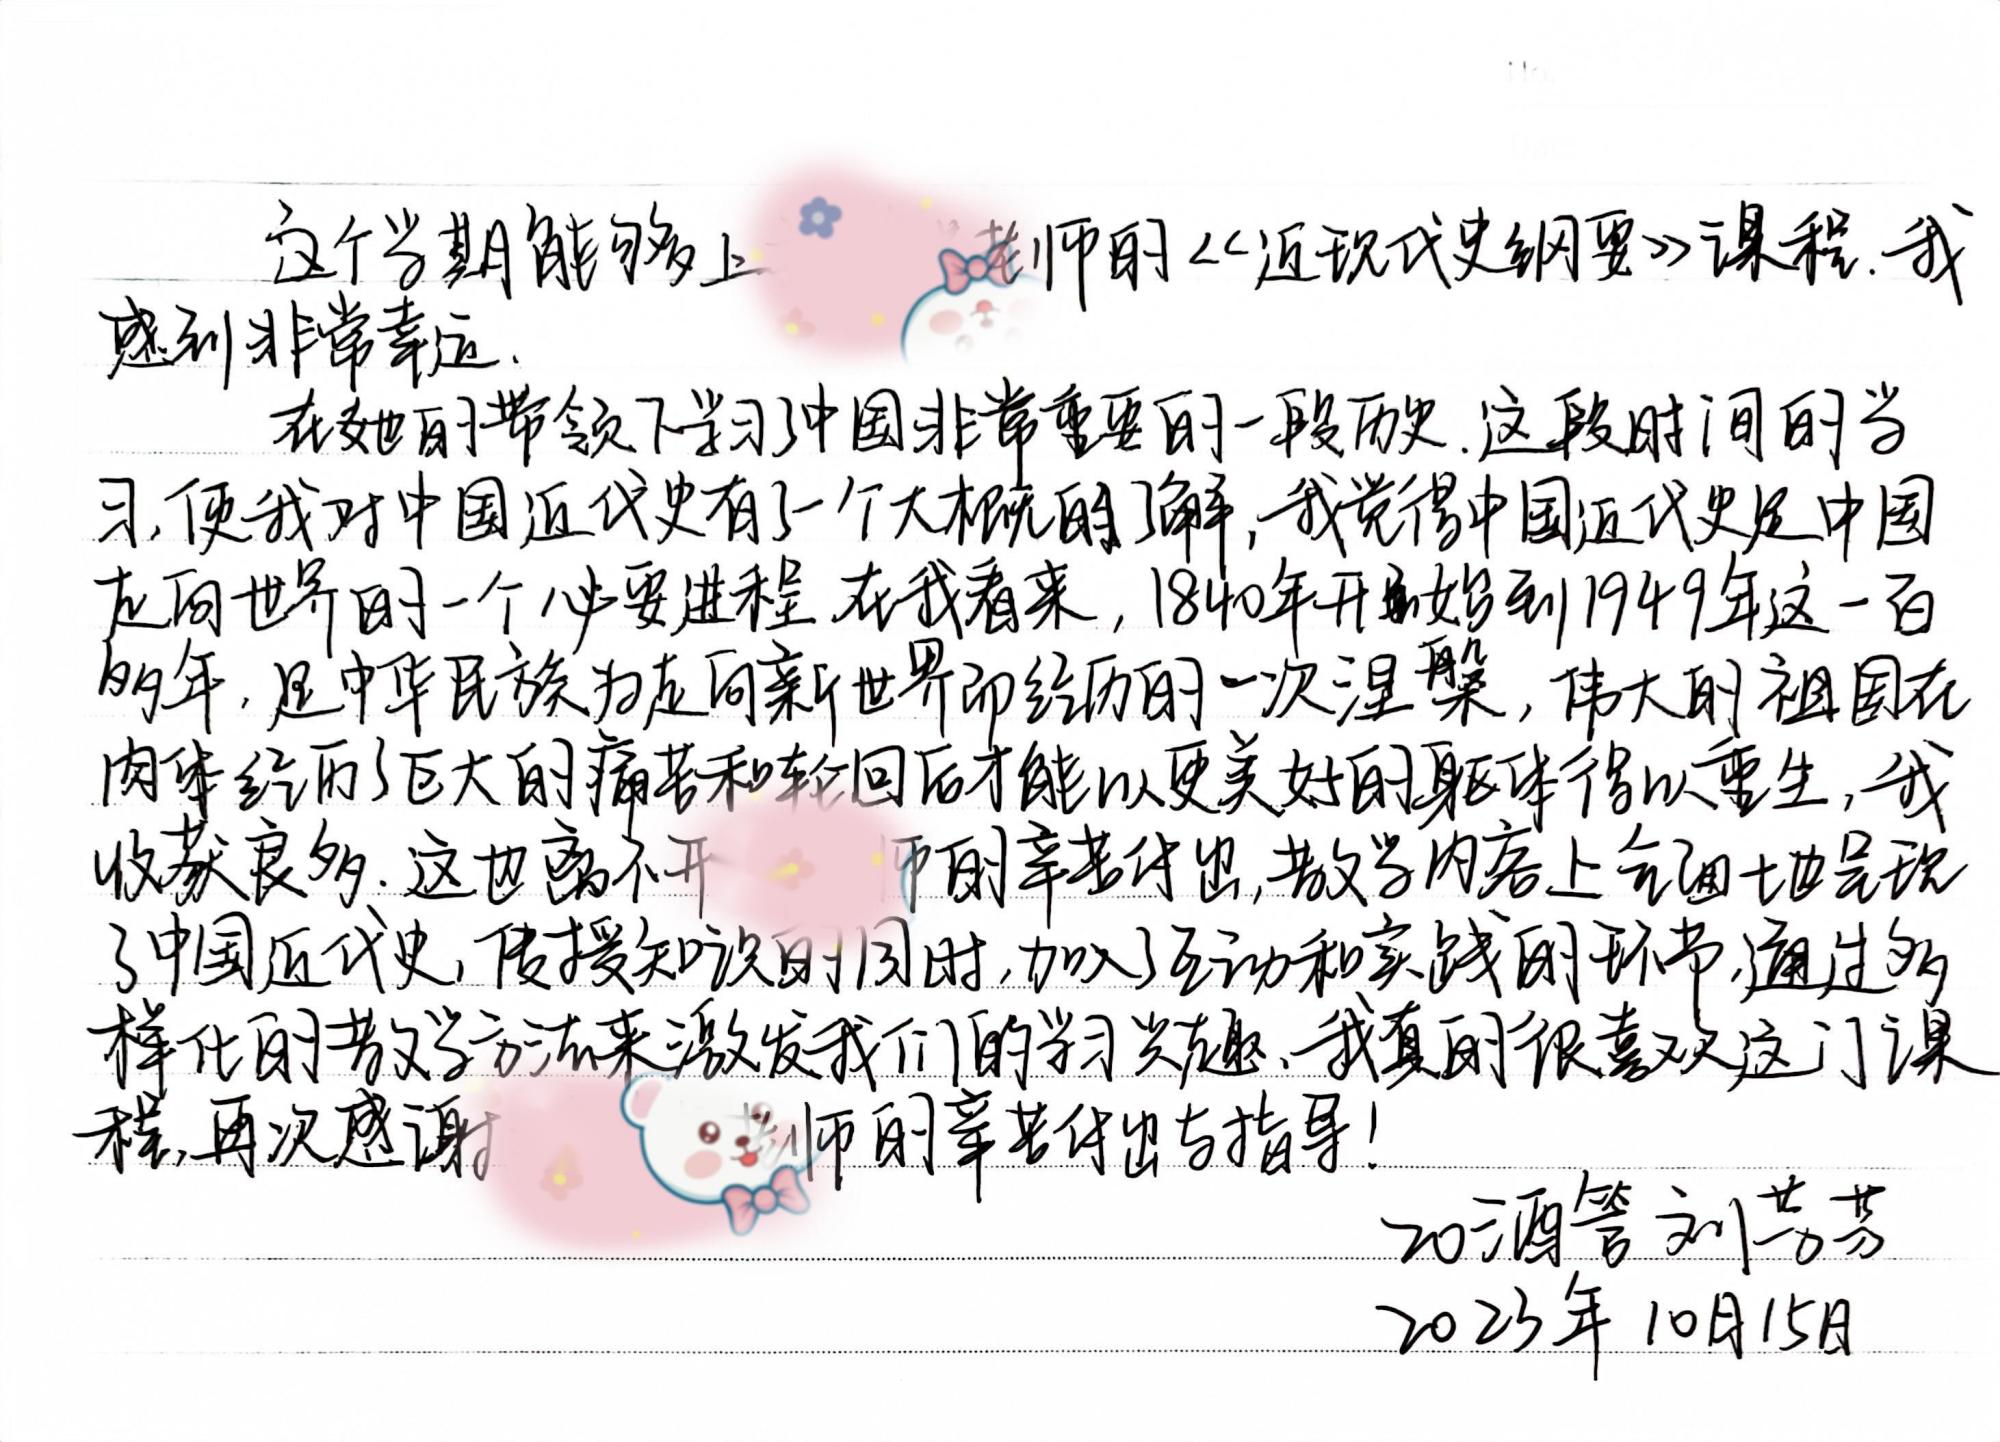 这个学期能够上 老师的<<近现代史纲要>>课程.我
感到非常幸运.
在她的带领下学习了中国非常重要的一段历史.这段时间的学
习,使我对中国近代史有了一个大概的了解,我觉得中国近代史是中国
走向世界的一个必要进程.在我看来,1840年开始到1949年这一百
多年,是中华民族为走向新世界而经历的一次涅槃,伟大的祖国在
肉体经历了巨大的痛苦和轮回后才能以更美好的躯体得以重生,我
收获良多.这也离不开 师的辛苦付出,教学内容上全面地呈现
了中国近代史,传授知识的同时,加入了互动和实践的环节,通过多
样化的教学方法来激发我们的学习兴趣.我真的很喜欢这门课
程,再次感谢 老师的辛苦付出与指导!
20酒管 刘芳芳
2023年10月15日